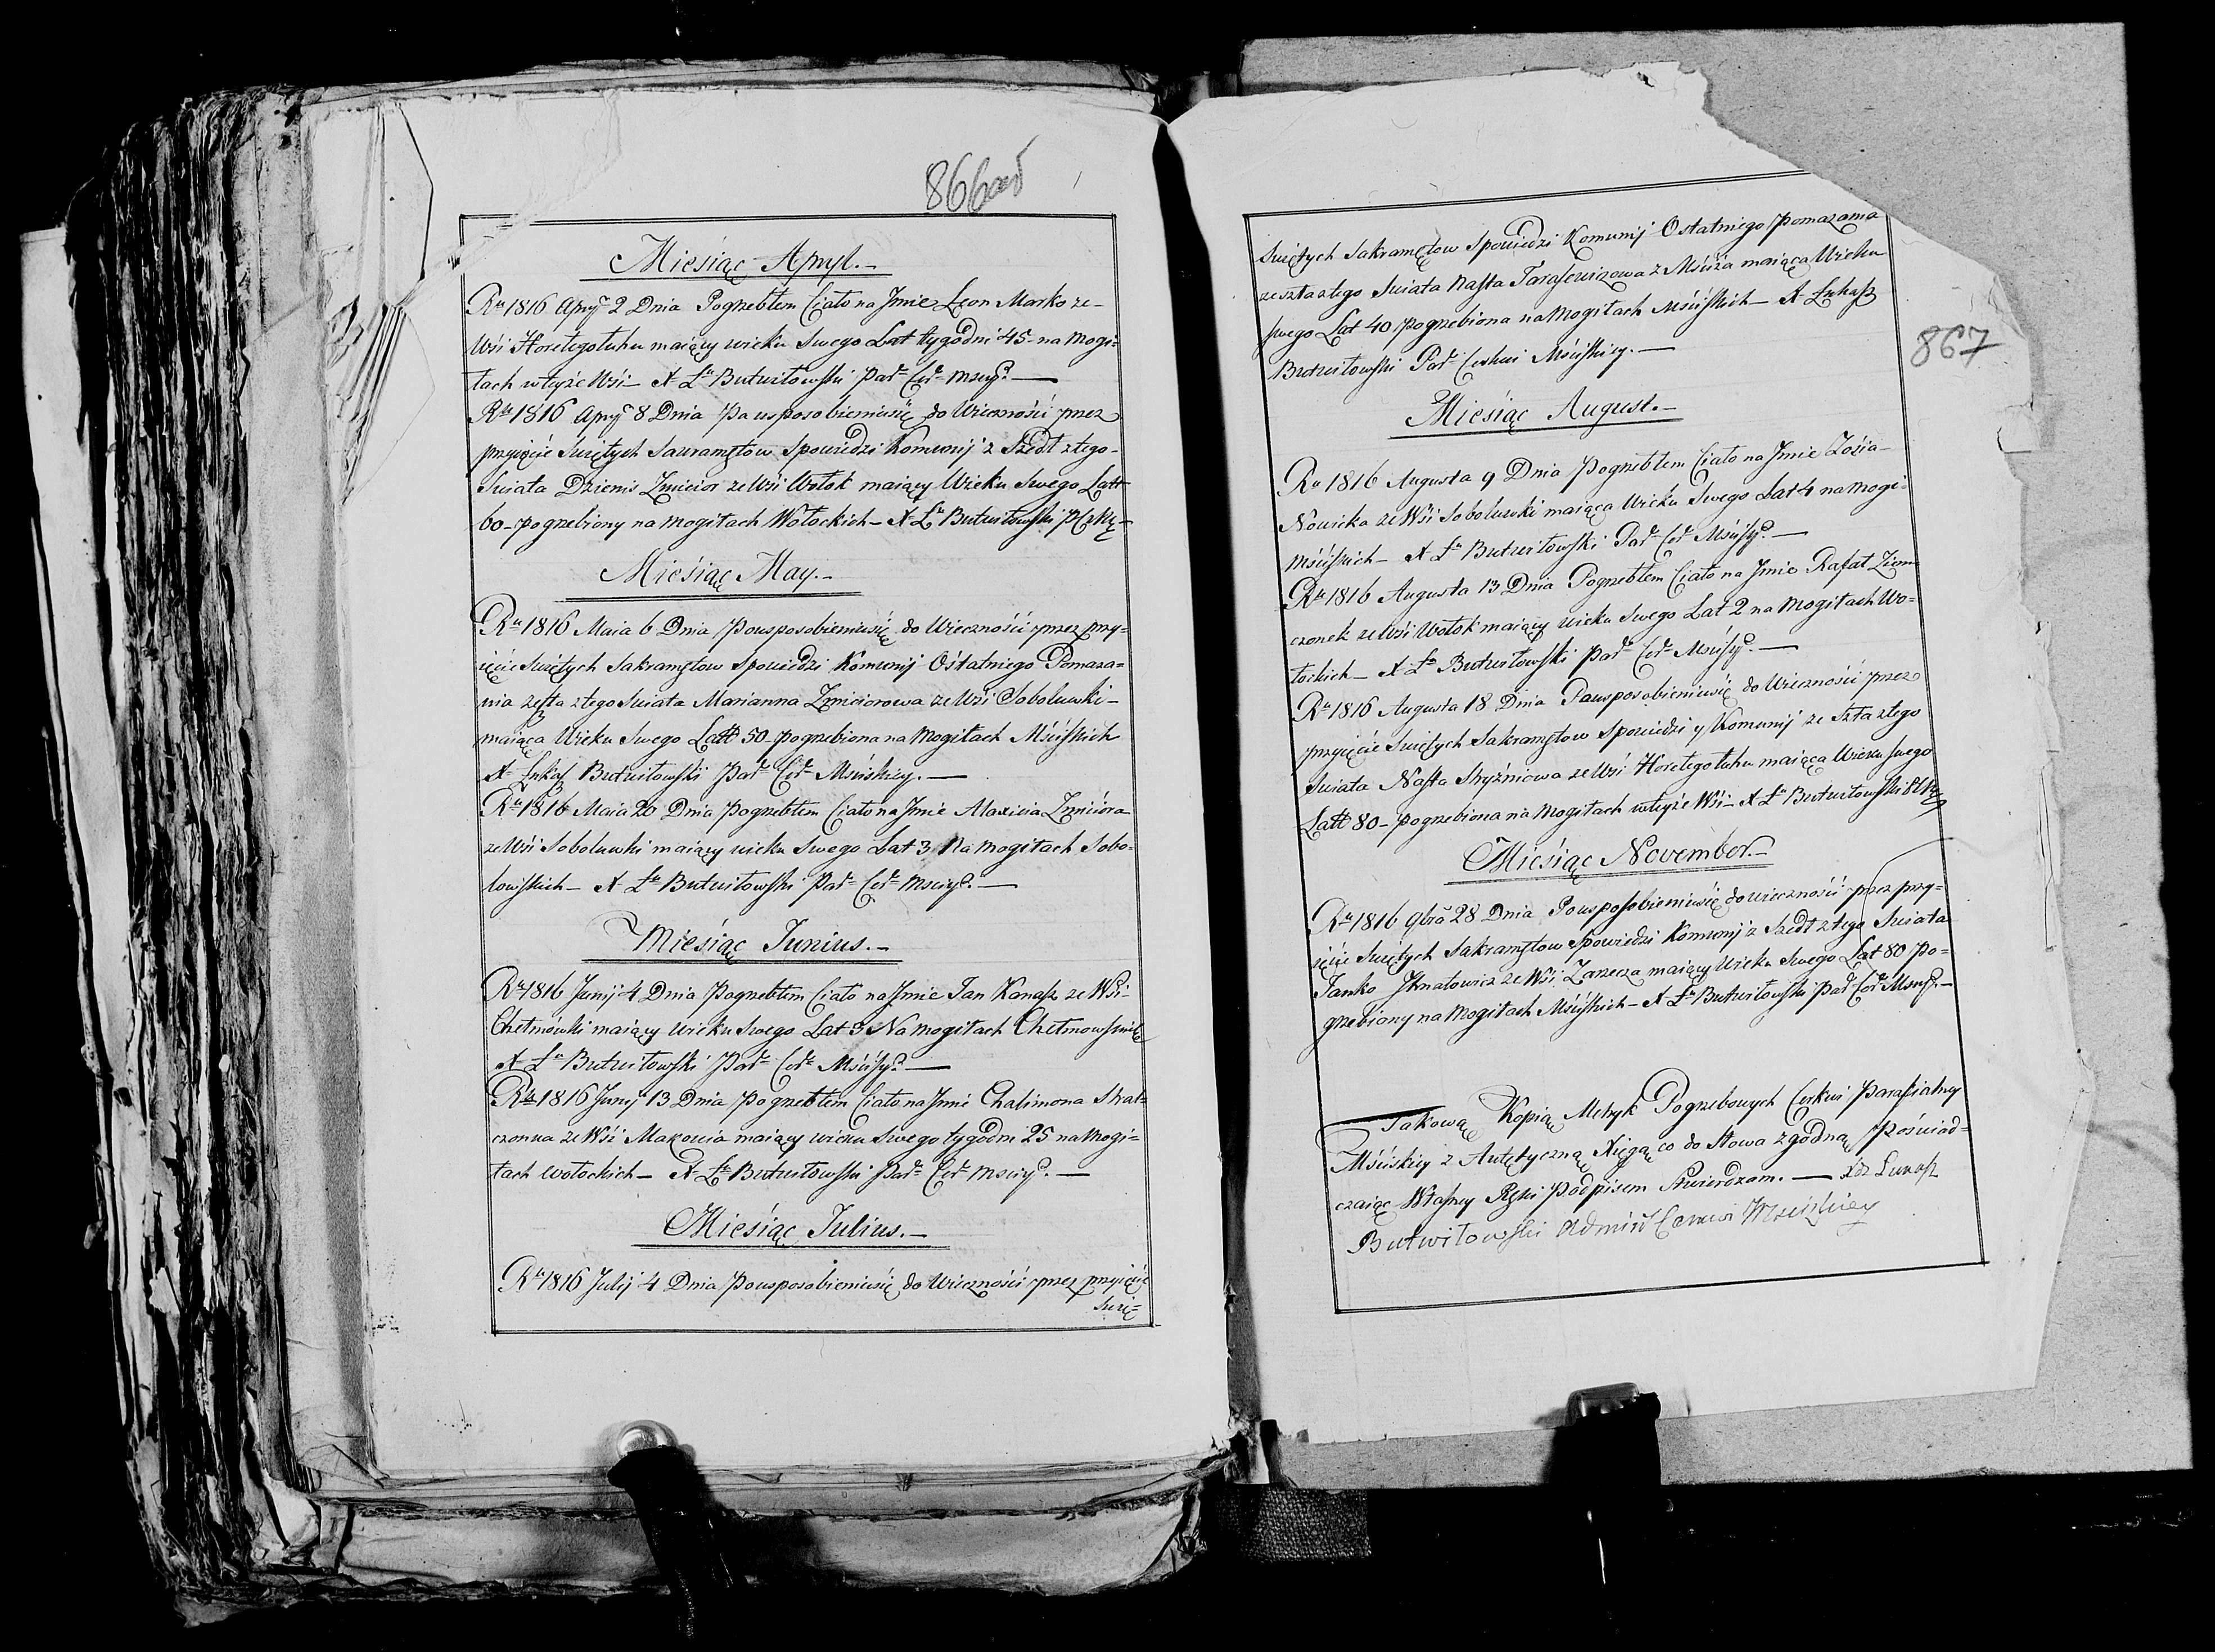 866об
Miesiąc Apryl.—
Ru 1816 Apry 2 Dnia Pogrzebłem Ciało na Jmie Leon Marko ze-
Wśi Horełegotuhu maiący wieku Swego Lat tygodni 45- na Mogi=
łach wteyże Wśi- X Łu Butwiłowski Par Cer Mściy.—
Ru 1816 Apry 8 Dnia Pa usposobieniusię do Wieczności przez
przyięcie Swiętych Sakramętow Spowiedzi Komunij z Szedł ztego-
Swiata Dzienis Zmicior ze Wśi Wołok maiący Wieku Swego Latt
60- pogrzebiony na Mogiłach Wołockich- X Łu Butwiłowski
Miesiąc May.—
Ru 1816 Maia 6 Dnia Pousposobieniusię do Wieczności przez przy=
ięcie Swiętych Sakramętow Spowiedzi Komunij Ostatniego Pomaza=
nia zeszła ztego Swiata Marianna Zmiciorowa ze Wśi Soboluwki-
maiąca Wieku Swego Latt 50- pogrzebiona na Mogiłach Mśćiskich
X Łukasz Butwiłowski Par Cer Mściskiey.—
Ru 1816 Maia 20 Dnia Pogrzebłem Ciało na Jmie Alaxieia Zmićiora
ze Wśi Soboluwki maiący wieku Swego Lat 3 Na Mogiłach Sobo=
lowskich- X Łu Butwiłowski Par Cer Mściy.—
Miesiąc Junius.—
Ru 1816 Junij 4 Dnia Pogrzebłem Ciało na Jmie Jan Kanasz ze Wśi-
Chełmówki maiący Wieku Swego Lat 3 Na Mogiłach
X Łu Butwiłowski Par Cer Mśćisy.—
Ru 1816 Junij 13 Dnia Pogrzebłem Ciało na Jmie Chalimona Skrat=
czonka ze Wśi Makowia maiący wieku Swego tygodni 25 na Mogi=
łach Wołockich- X Łu Butwiłowski Par Cer Mściy.—
Miesiąc Julius.—
Ru 1816 Julij 4 Dnia Pousposobieniusię do Wieczności przez przyięcie
Swię=
867
Swiętych Sakramętow Spowiedzi Komunij Ostatniego Pomazania
zeszła ztego Swiata Nasta Tarasewiczowa z Mśćiża maiąca Wieku
swego Lat 40 pogrzebiona na Mogiłach Mśćiskich- X Łukasz
Butwiłowski Par Cerkwi Mśćiskiey.—
Miesiąc August.—
Ru 1816 Augusta 9 Dnia Pogrzebłem Ciało na Jmie Zosia-
Nowicka ze Wśi Soboluwki maiąca Wieku Swego Lat 4 na Mogi=
Mśćiskich- X Łu Butwiłowski Par Cer Mśćisy.—
Ru 1816 Augusta 13 Dnia Pogrzebłem Ciało na Jmie Rafał
czonek ze Wśi Wołok maiący wieku Swego Lat 2 na Mogiłach Wo=
łockich- X Łu Butwiłowski Par Cer Mśćisy.—
Ru 1816 Augusta 18 Dnia Pausposobieniusię do Wieczności przez
przyięcie Swiętych Sakramętow Spowiedzi y Komunij ze Szła ztego
Swiata Nasta Stryżniowa ze Wśi Horełegotuhu maiąca Wieku swego
Latt 80- pogrzebiona na Mogiłach wteyże Wśi- X Łu Butwiłowski
Miesiąc November.—
Ru 1816 9bra 28 Dnia Pousposobieniusię do wieczności przez przy=
ięcie Swiętych Sakramętow Spowiedzi Komunij z Szedł ztego Swiata
Janko Jhnatowicz ze Wśi Zarzecza maiący Wieku Swego Lat 80 Po=
grzebiony na Mogiłach Mśćiskich- X Łu Butwiłowski Par Cer Mściy.—
Takową Kopią Metryk Pogrzebowych Cerkwi Parafialney
Mśćiskiey z Autętyczną Xięgą co do Słowa zgodną Poświad=
czaiąc Własney Ręki Podpisem Stwierdzam.— Xdz Łukasz
Butwiłowski Admin Cerkwi Mśćiskiey